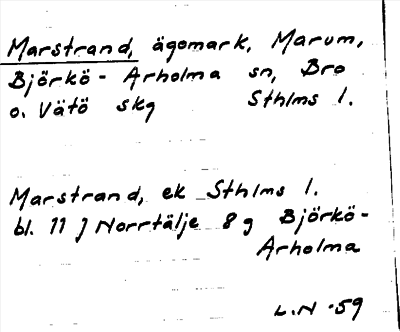 Marstrand, ägomark, Marum,
Björkö - Arholma sn, Bro
o. Vätö skg Sthlms l.
Marstrand, ek Sthlms l.
bl. 11 J Norrtälje 8 g Björkö-
Arholma
L.N -59